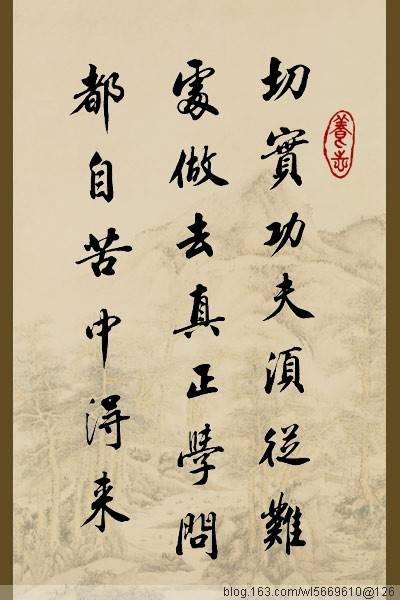 切實功夫須從難
處做去真正學問
都自苦中得来
養志
blog.163.com/wl5669610@126